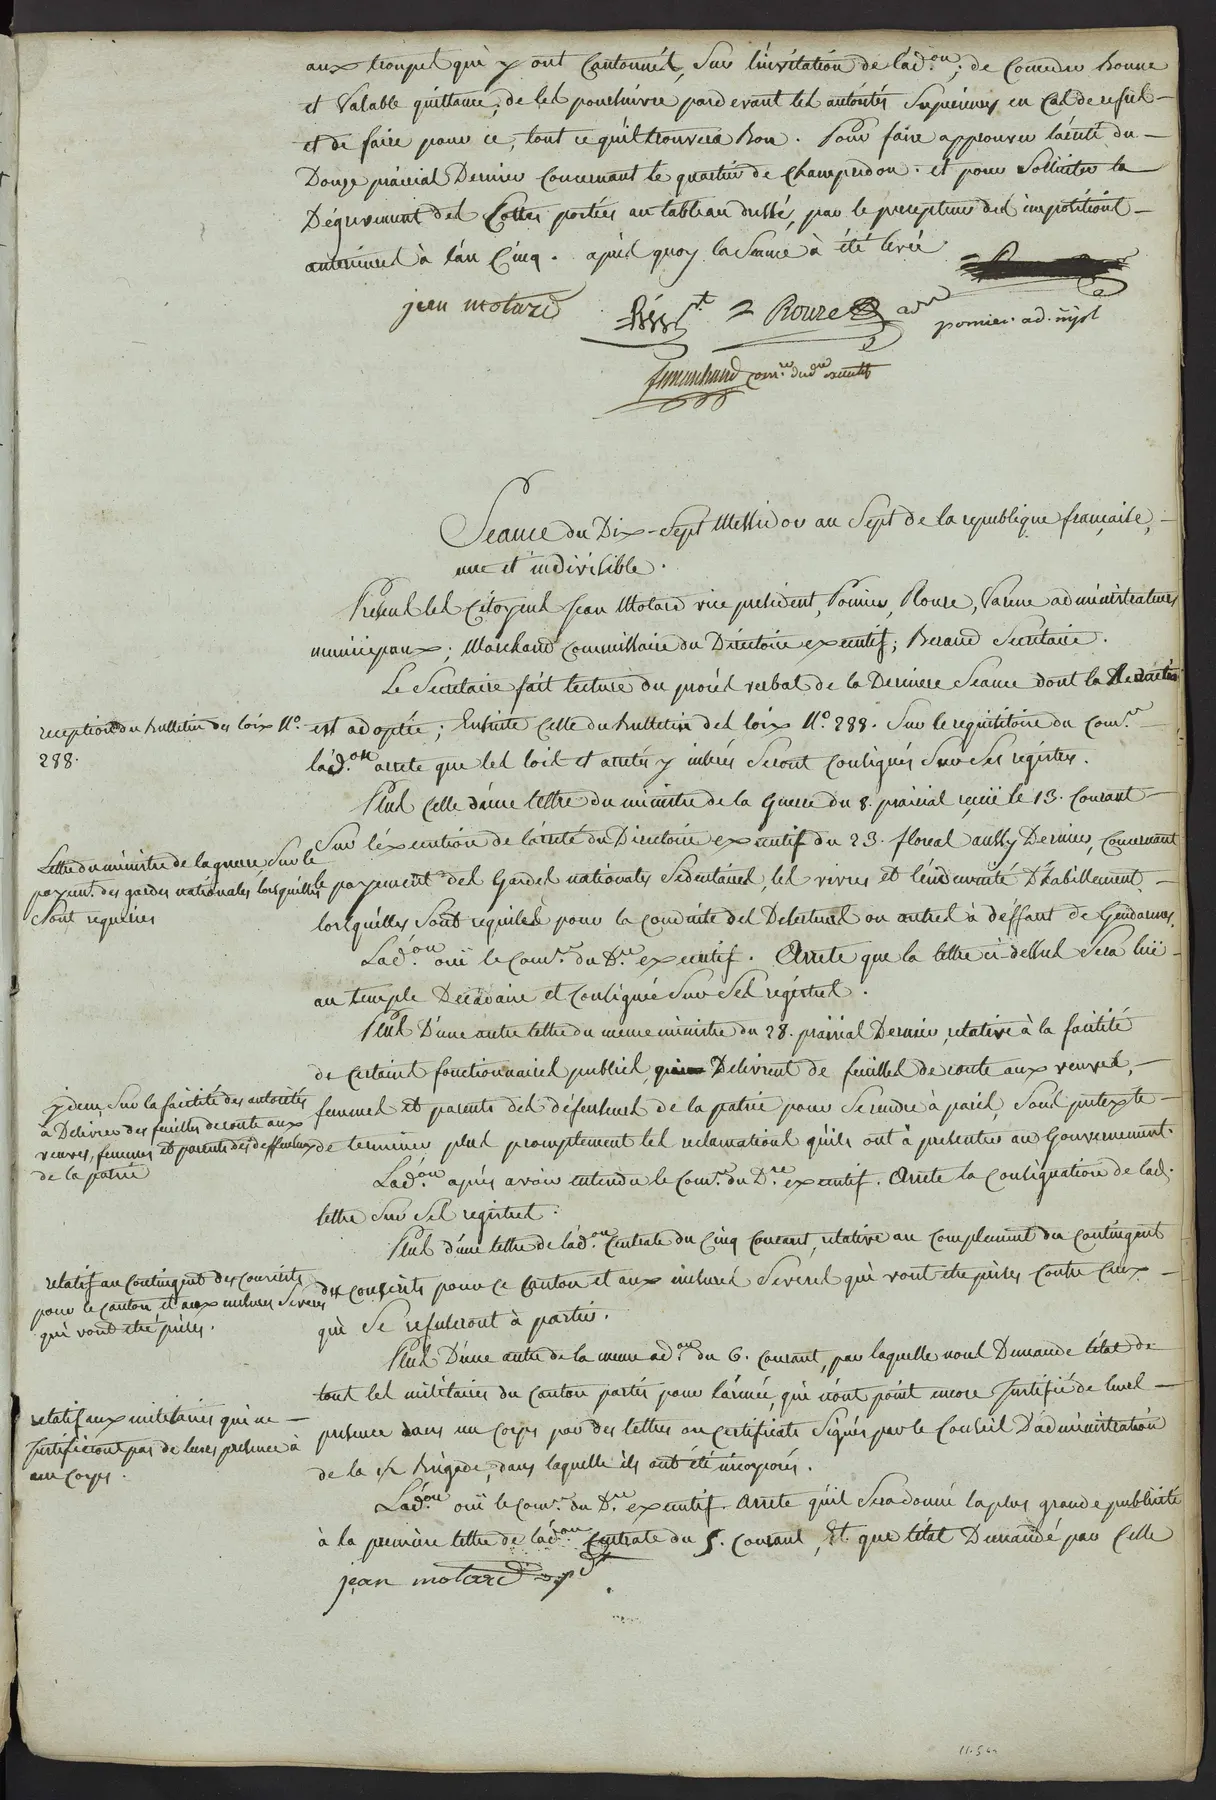 aux troupes qui y ont Cantonnés, Sur l'invitation de l'ad.on; de Concéder bonne
et Valable quittance; de les poursuivre pardevant les autorités Supérieures en Cas de refus —
et de faire pour ce, tout ce qu'il trouvera Bon. Pour faire approuver l'arrêté du —
Douze prairial Dernier Concernant le quartier de Champerdon. et pour Solliciter la
Dégrèvement des Cottes portées au tableau dressé, par le percepteur des impositions —
antérieures à l'an Cinq. après quoy la Séance à été levée.
jean motard
Rouze ad.eur
pomier. ad. mpl
fmarchand com.re du d.re executif
Seance du Dix-Sept Messidor an Sept de la republique française, —
une et indivisible.
Présens les Citoyens Jean Motard vice président, Pomier, Rouze, Varene administrateurs
municipaux; Marchand Commissaire du Directoire executif; Berand Secrétaire.
Le Secretaire fait lecture du procès verbal de la Derniere Seance dont la Rédaction
reception du bulletin des loix N.o
288.
est adoptée; Ensuite Celle du Bulletin des loix N.o 288. Sur le requisitoire du Com.re —
l'ad.on arrete que les lois et arretés y insérés Seront Consignés Sur Ses registres.
Plus Celle d'une lettre du ministre de la Guerre du 8. prairial reçuë le 13. Courant —
Lettre du ministre de la guerre, Sur le
payem.t des gardes nationales lorsquilles
Sont requises
Sur l'éxecution de l'arrêté du Directoire executif du 23. floreal aussy Dernier, Concernant
le payement des Gardes nationales Sedentaires, les vivres et l'indemnité D'habillement. —
lorsqu'elles Sont requises pour la Conduite des Deserteurs ou autres à déffaut de Gendarmes.
L'ad.on ouï le Com.re du D.re executif. Arrete que la lettre ci-dessus Sera luë
au temple Décadaire et Consignée Sur Ses régistres.
Plus D'une autre lettre du meme ministre du 28. prairial Dernier, relative à la facilité
de Certains fonctionnaires publics, qui Delivrent de feuilles de route aux veuves, —
ydem Sur la facilité des autorités
à Delivrer des feuilles de route aux
veuves, femmes et parents des deffenseurs
de la patrie
femmes et parents des défenseurs de la patrie pour Se rendre à paris, Sous pretexte —
de terminer plus promptement les reclamations qu'ils ont à presenter au Gouvernement.
L'ad.on après avoir entendu le Com.re du D.re executif. Arrete la Consignation de lad.
lettre Sur Ses registres.
Plus d'une lettre de l'ad.on Centrale du Cinq Courant, relative au Complement du Contingent
relatif au Contingent des conscrits
pour le canton et aux mesures Séveres
qui vont etre prises.
des conscrits pour ce Canton et aux mesures Severes qui vont etre prises Contre Ceux —
qui Se refuseront à partir.
Plus D'une autre de la meme ad.on du 6. Courant, par laquelle nous Demande l'état de
relatif aux militaires qui ne —
Justifieront pas de leurs presence à
aux Corps.
tous les militaires du Canton partis pour l'armée, qui n'ont point encore Justifié de leurs —
presence dans un Corps par des lettres ou certificats Signés par le Conseil D'administration
de la ½ Brigade, dans laquelle ils ont été incorporés.
L'ad.on ouï le Com.re du D.re executif. Arrete qu'il Sera donné la plus grande publicité
à la premiere lettre de l'ad.on Centrale du 5. Courant, Et que l'état Demandé par Celle
jean motard